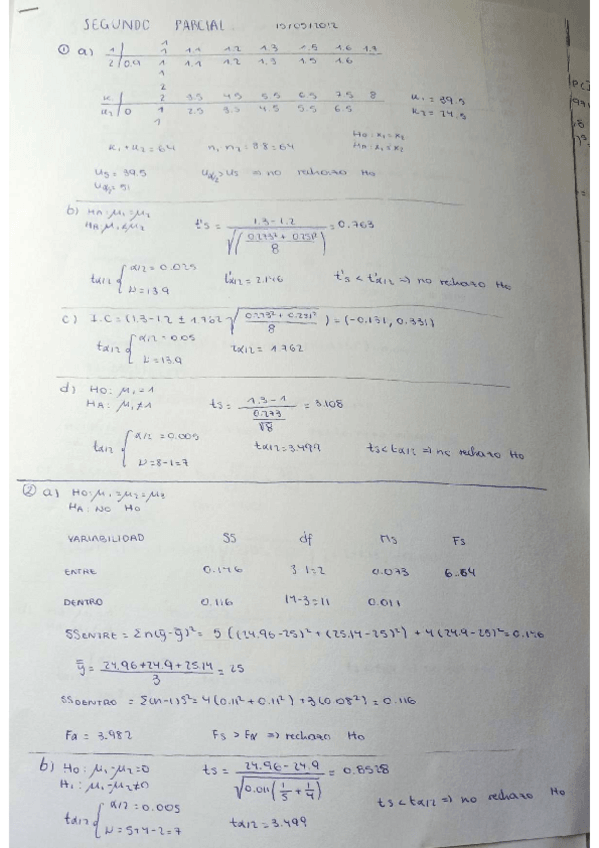 SEGUNDO PARCIAL 15/05/2012
① a) 1 | 1 1.1 1.2 1.3 1.5 1.6 1.9
2 | 0.9 1 1.1 1.2 1.3 1.5 1.6
1
1
2
K₁ | 2 3.5 4.5 5.5 6.5 7.5 8 K₁ = 39.5
K₂ | 0 1 2.5 3.5 4.5 5.5 6.5 K₂ = 24.5
1
K₁ + K₂ = 64 n₁ n₂ = 8·8 = 64 H0: μ₁ = μ₂
HA: μ₁ ≠ μ₂
Us = 39.5 Uα/2 > Us ⇒ no rechazo Ho
Uα/2 = 51
b) HA: μ₁ = μ₂ t's = 1.3 - 1.2 / √((0.273² + 0.251²)/8) = 0.763
HA: μ₁ ≠ μ₂
tα/2 { α/2 = 0.025 t'α/2 = 2.146 t's < t'α/2 ⇒ no rechazo Ho
ν = 13.9
c) I.C = (1.3 - 1.2 ± 1.762 √((0.273² + 0.251²)/8)) = (-0.131, 0.331)
tα/2 { α/2 = 0.05 tα/2 = 1.762
ν = 13.9
d) Ho: μ₁ = 1 ts = 1.3 - 1 / (0.273/√8) = 3.108
HA: μ₁ ≠ 1
tα/2 { α/2 = 0.005 tα/2 = 3.499 ts < tα/2 ⇒ no rechazo Ho
ν = 8-1 = 7
② a) Ho: μ₁ = μ₂ = μ₃
HA: NO Ho
VARIABILIDAD SS df Ms Fs
ENTRE 0.146 3-1=2 0.073 6.64
DENTRO 0.116 14-3=11 0.011
SSENTRE = Σn(ȳ-ȳ)² = 5((24.96-25)² + (25.14-25)²) + 4(24.9-25)² = 0.146
ȳ = 24.96+24.9+25.14 / 3 = 25
SSDENTRO = Σ(n-1)S² = 4(0.11² + 0.11²) + 3(0.08²) = 0.116
Fα = 3.982 Fs > Fα ⇒ rechazo Ho
b) Ho: μ₁ - μ₂ = 0 ts = 24.96 - 24.9 / √(0.011(1/5 + 1/4)) = 0.8528
H₁: μ₁ - μ₂ ≠ 0
tα/2 { α/2 = 0.005 tα/2 = 3.499 ts < tα/2 ⇒ no rechazo Ho
ν = 5+4-2 = 7